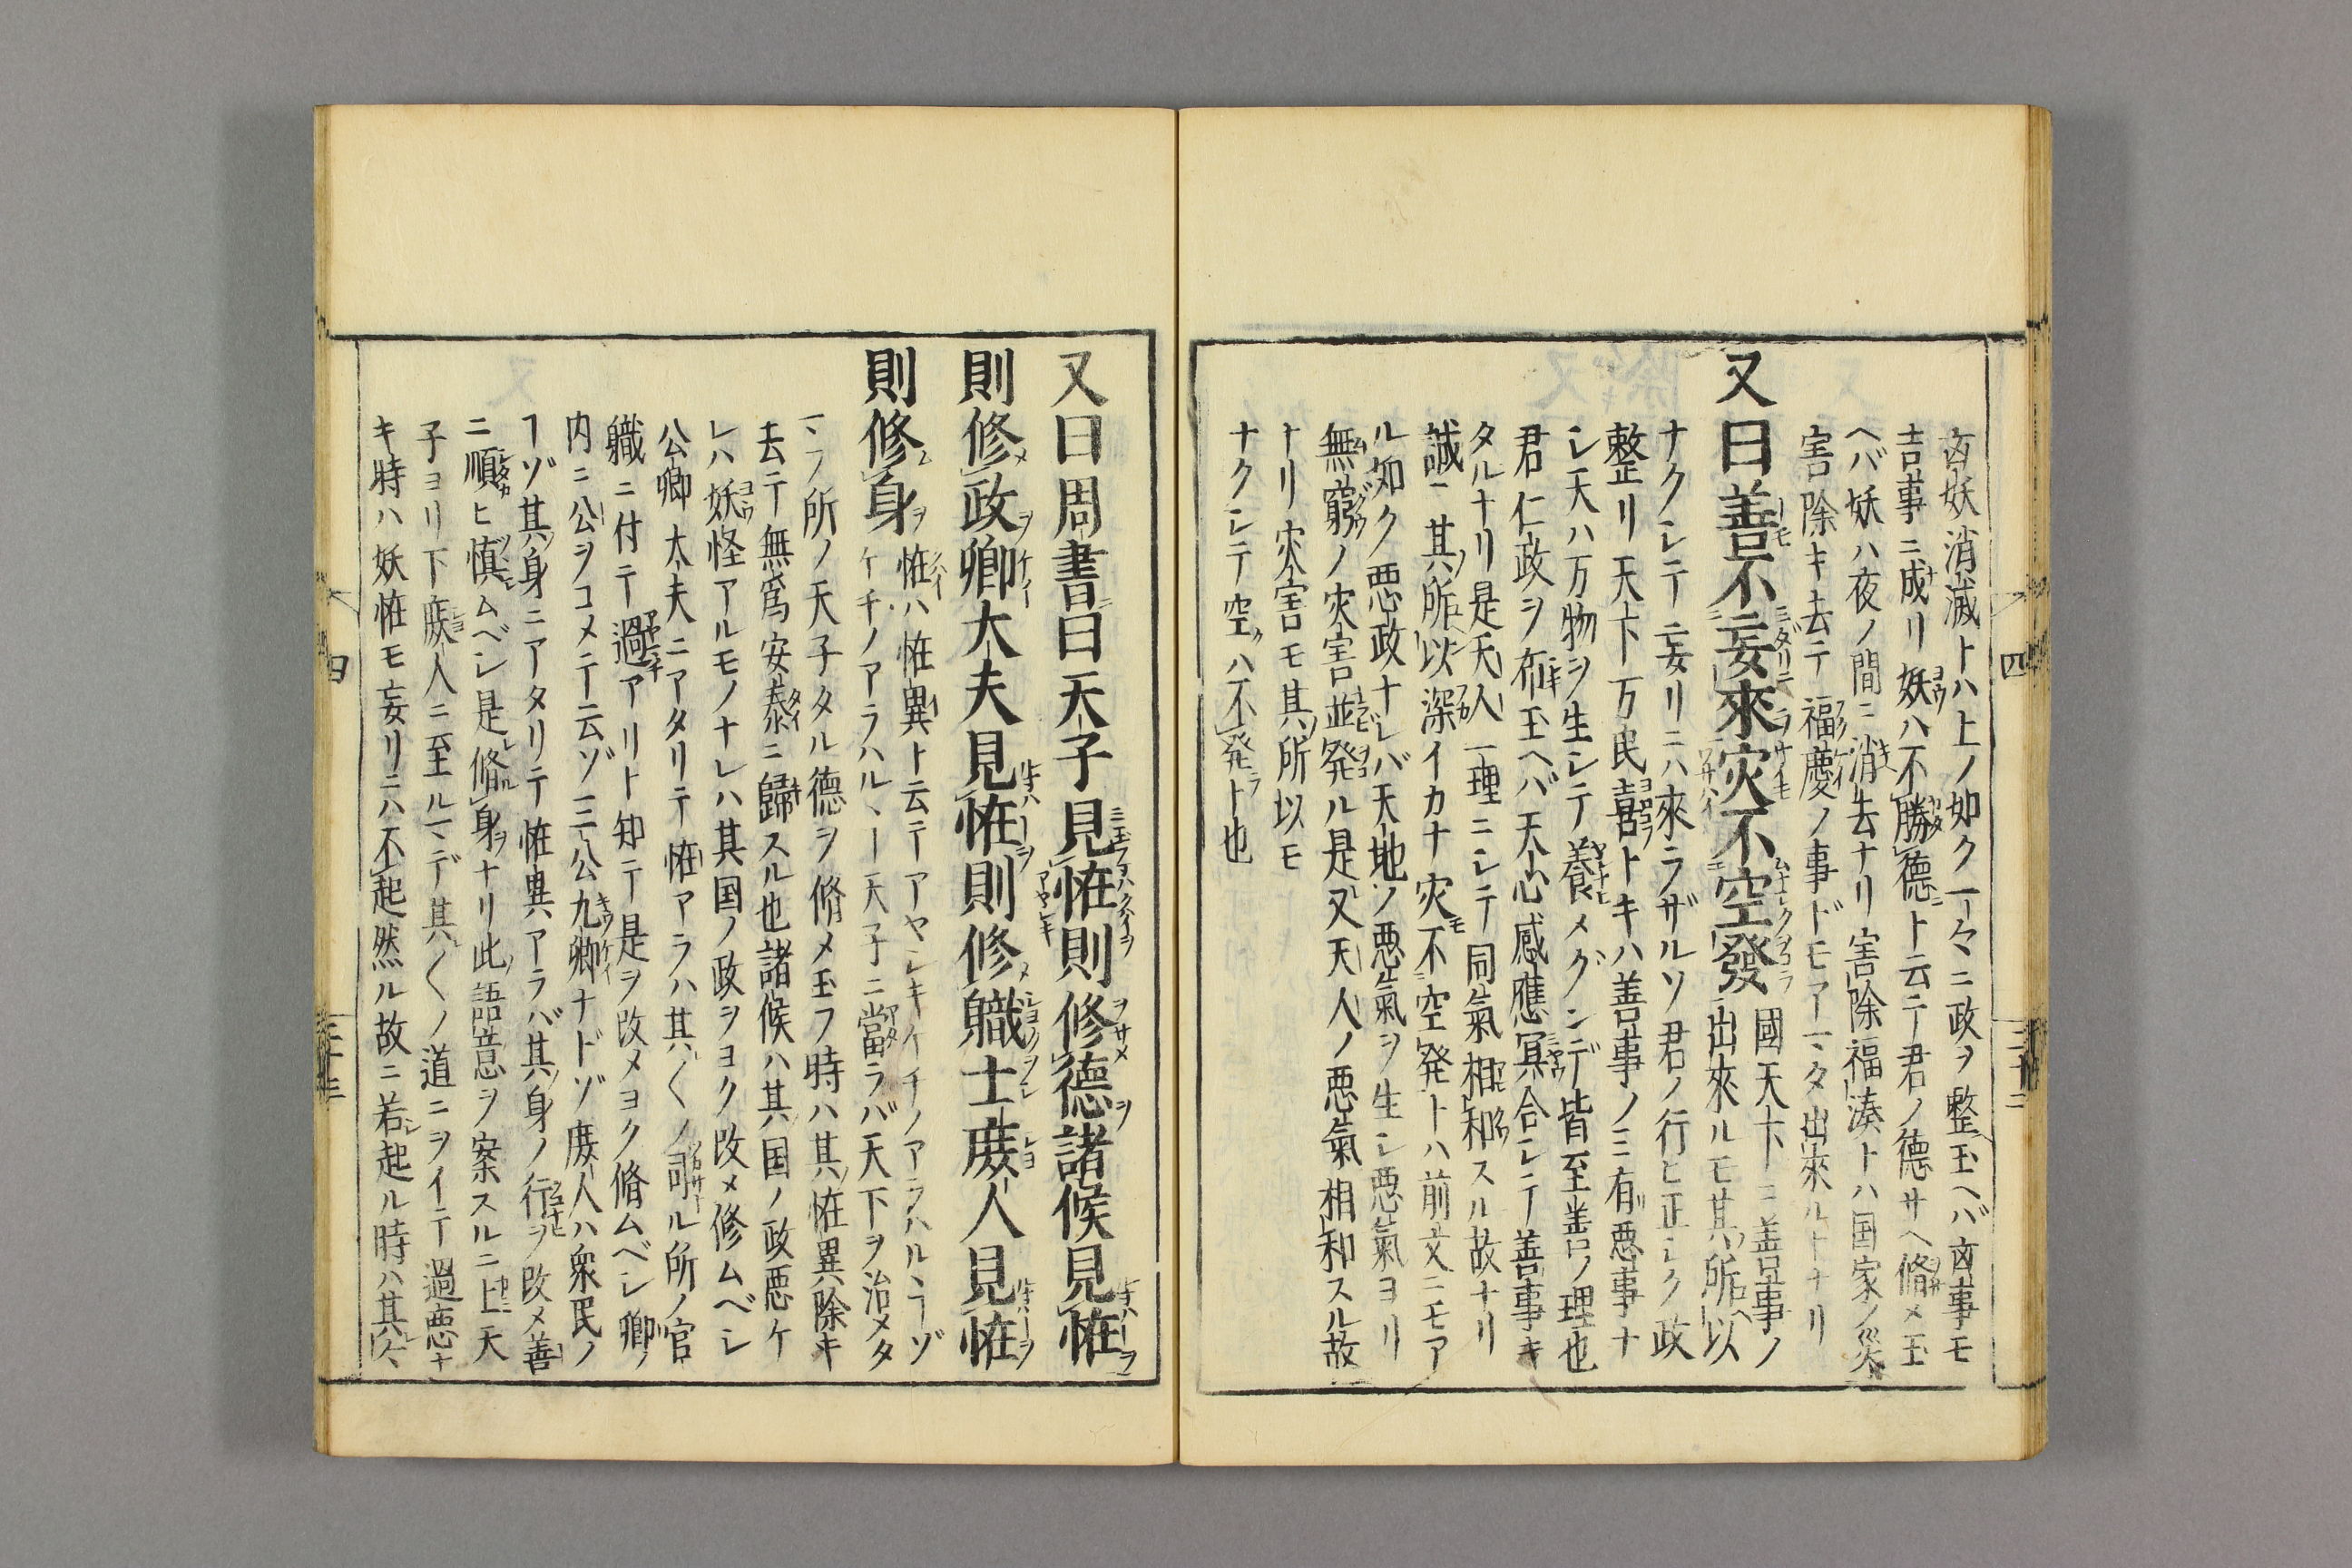 凶妖消滅トハ上ノ如ク一々ニ政ヲ整玉ヘバ凶事モ
吉事ニ成リ妖ハ不勝德ト云テ君ノ德サヘ脩メ玉
ヘバ妖ハ夜ノ間ニ消去ナリ害除福湊トハ国家ノ災
害除キ去テ福慶ノ事ドモアマタ出來ルトナリ
又曰善不妄來灾不空發 國天下ニ善事ノ
出來ルモ其所以
ナクシテ妄リニハ來ラザルソ君ノ行ヒ正シク政
整リ天下万民喜トキハ善事ノミ有悪事ナ
シ天ハ万物ヲ生シテ養メグンデ皆至善ノ理也
君仁政ヲ布玉ヘバ天心感應冥合シテ善事キ
タルナリ是天人一理ニシテ同氣相和スル故ナリ
誠ニ其所以深イカナ灾不空発トハ前文ニモア
ル如ク悪政ナレバ天地ソ悪氣ヲ生シ悪氣ヨリ
無窮ノ灾害並発ル是又天人ノ悪氣相和スル故
ナリ灾害モ其所以モ
ナクシテ空ハ不発ト也
四
三十二
又曰周書曰天子見恠則修德諸候見恠
則修政卿大夫見恠則修職士庻人見恠
則修身 恠ハ恠異ト云テアヤシキケチノアラハルヽヿゾ
ケチノアラハルヽヿ天子ニ當ラバ天下ヲ治メタ
マフ所ノ天子タル德ヲ脩メ玉フ時ハ其恠異除キ
去テ無爲安泰ニ歸スル也諸候ハ其国ノ政悪ケ
レハ妖怪アルモノナレハ其国ノ政ヲヨク改メ修ムベシ
公卿大夫ニアタリテ恠アラハ其〱ノ司ル所ノ官
職ニ付テ過アリト知テ是ヲ改メヨク脩ムベシ卿ノ
内ニ公ヲコメテ云ゾ三公九卿ナドゾ庻人ハ衆民ノ
ヿゾ其身ニアタリテ恠異アラバ其身ノ行ヲ改メ善
ニ順ヒ慎ムベシ是脩身ナリ此語意ヲ案スルニ上天
子ヨリ下庻人ニ至ルマデ其〱ノ道ニヲイテ過悪ナ
キ時ハ妖恠モ妄リニハ不起然ル故ニ若起ル時ハ其
四
三十三